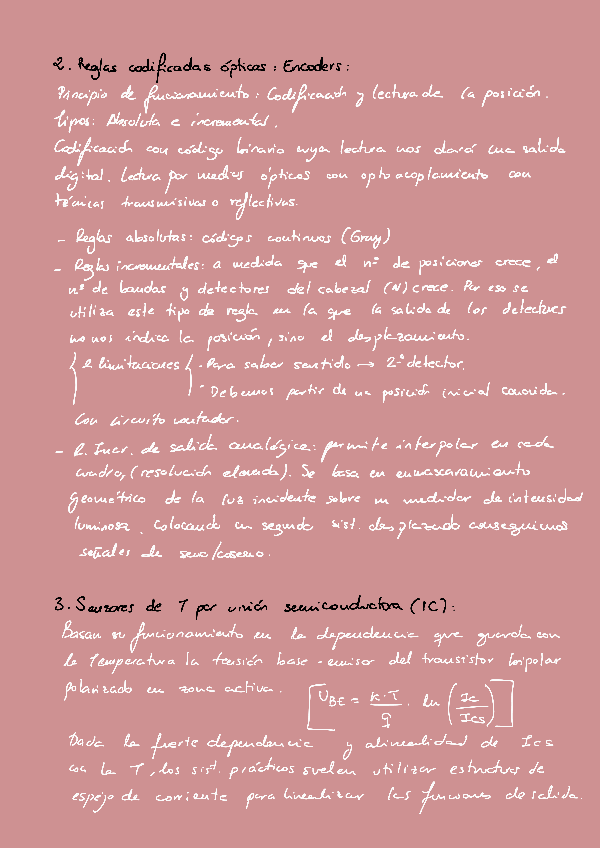 2. Reglas codificadas ópticas: Encoders:
Principio de funcionamiento: Codificación y lectura de la posición.
Tipos: Absoluta e incremental.
Codificación con código binario cuya lectura nos dará una salida
digital. Lectura por medios ópticos con optoacoplamiento con
técnicas transmisivas o reflectivas.
- Reglas absolutas: códigos continuos (Gray)
- Reglas incrementales: a medida que el nº de posiciones crece, el
nº de bandas y detectores del cabezal (N) crece. Por eso se
utiliza este tipo de regla en la que la salida de los detectores
no nos indica la posición, sino el desplazamiento.
2 limitaciones - Para saber sentido → 2º detector.
- Debemos partir de una posición inicial conocida.
Con circuito contador.
- R. Incr. de salida analógica: permite interpolar en cada
cuadro, (resolución elevada). Se basa en enmascaramiento
geométrico de la luz incidente sobre un medidor de intensidad
luminosa. Colocando un segundo sist. desplazado conseguimos
señales de seno/coseno.
3. Sensores de T por unión semiconductora (IC):
Basan su funcionamiento en la dependencia que guarda con
la Temperatura la tensión base-emisor del transistor bipolar
polarizado en zona activa. [U_BE = K·T/q · ln (Ic/Ics)]
Dada la fuerte dependencia y alinealidad de Ics
con la T, los sist. prácticos suelen utilizar estructuras de
espejo de corriente para linealizar las funciones de salida.